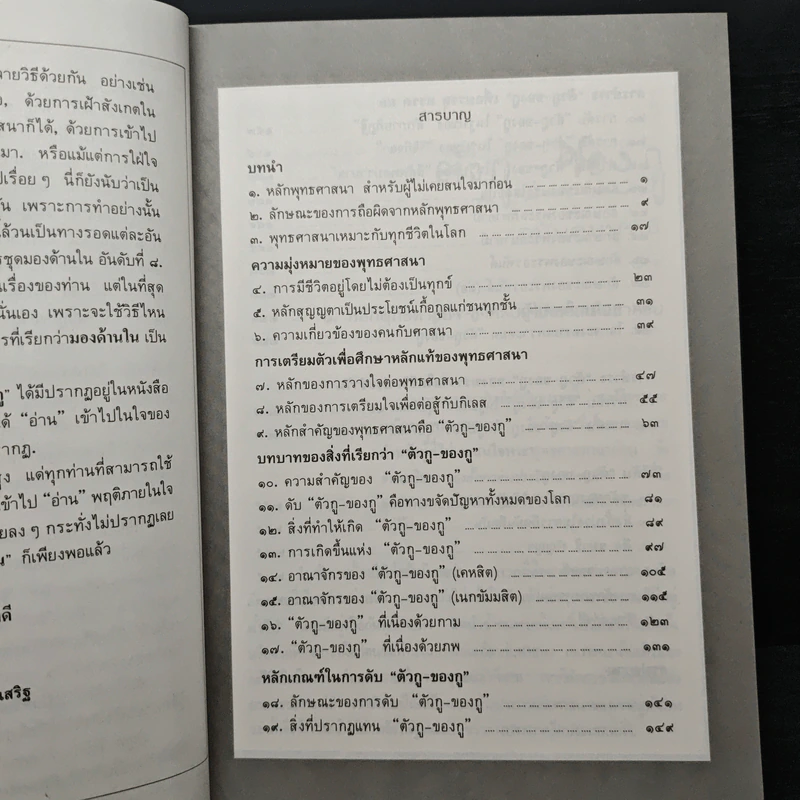 ายวิธีด้วยกัน อย่างเช่น
ด้วยการเฝ้าสังเกตใน
สนาก็ได้, ด้วยการเข้าไป
มา. หรือแม้แต่การใฝ่ใจ
ปเรื่อยๆ นี่ก็ยังนับว่าเป็น
น เพราะการทำอย่างนั้น
ล้วนเป็นทางรอดแต่ละอัน
รชุดมองด้านใน อันดับที่ ๘.
นเรื่องของท่าน แต่ในที่สุด
นั่นเอง เพราะจะใช้วิธีไหน
รที่เรียกว่ามองด้านใน เป็น
" ได้มีปรากฏอยู่ในหนังสือ
ด้ "อ่าน" เข้าไปในใจของ
รากฏ.
ง แต่ทุกท่านที่สามารถใช้
ข้าไป "อ่าน" พฤติภายในใจ
ยลงๆ กระทั่งไม่ปรากฏเลย
น" ก็เพียงพอแล้ว
ดี
เสริฐ
สารบาญ
บทนำ
๑. หลักพุทธศาสนา สำหรับผู้ไม่เคยสนใจมาก่อน ๑
๒. ลักษณะของการถือผิดจากหลักพุทธศาสนา ๙
๓. พุทธศาสนาเหมาะกับทุกชีวิตในโลก ๑๗
ความมุ่งหมายของพุทธศาสนา
๔. การมีชีวิตอยู่โดยไม่ต้องเป็นทุกข์ ๒๓
๕. หลักสุญญตาเป็นประโยชน์เกื้อกูลแก่ชนทุกชั้น ๓๑
๖. ความเกี่ยวข้องของคนกับศาสนา ๓๙
การเตรียมตัวเพื่อศึกษาหลักแท้ของพุทธศาสนา
๗. หลักของการวางใจต่อพุทธศาสนา ๔๗
๘. หลักของการเตรียมใจเพื่อต่อสู้กับกิเลส ๕๕
๙. หลักสำคัญของพุทธศาสนาคือ "ตัวกู-ของกู" ๖๓
บทบาทของสิ่งที่เรียกว่า "ตัวกู-ของกู"
๑๐. ความสำคัญของ "ตัวกู-ของกู" ๗๓
๑๑. ดับ "ตัวกู-ของกู" คือทางขจัดปัญหาทั้งหมดของโลก ๘๑
๑๒. สิ่งที่ทำให้เกิด "ตัวกู-ของกู" ๘๙
๑๓. การเกิดขึ้นแห่ง "ตัวกู-ของกู" ๙๗
๑๔. อาณาจักรของ "ตัวกู-ของกู" (เคหสิต) ๑๐๕
๑๕. อาณาจักรของ "ตัวกู-ของกู" (เนกขัมมสิต) ๑๑๕
๑๖. "ตัวกู-ของกู" ที่เนื่องด้วยกาม ๑๒๓
๑๗. "ตัวกู-ของกู" ที่เนื่องด้วยภพ ๑๓๑
หลักเกณฑ์ในการดับ "ตัวกู-ของกู"
๑๘. ลักษณะของการดับ "ตัวกู-ของกู" ๑๔๑
๑๙. สิ่งที่ปรากฏแทน "ตัวกู-ของกู" ๑๔๙